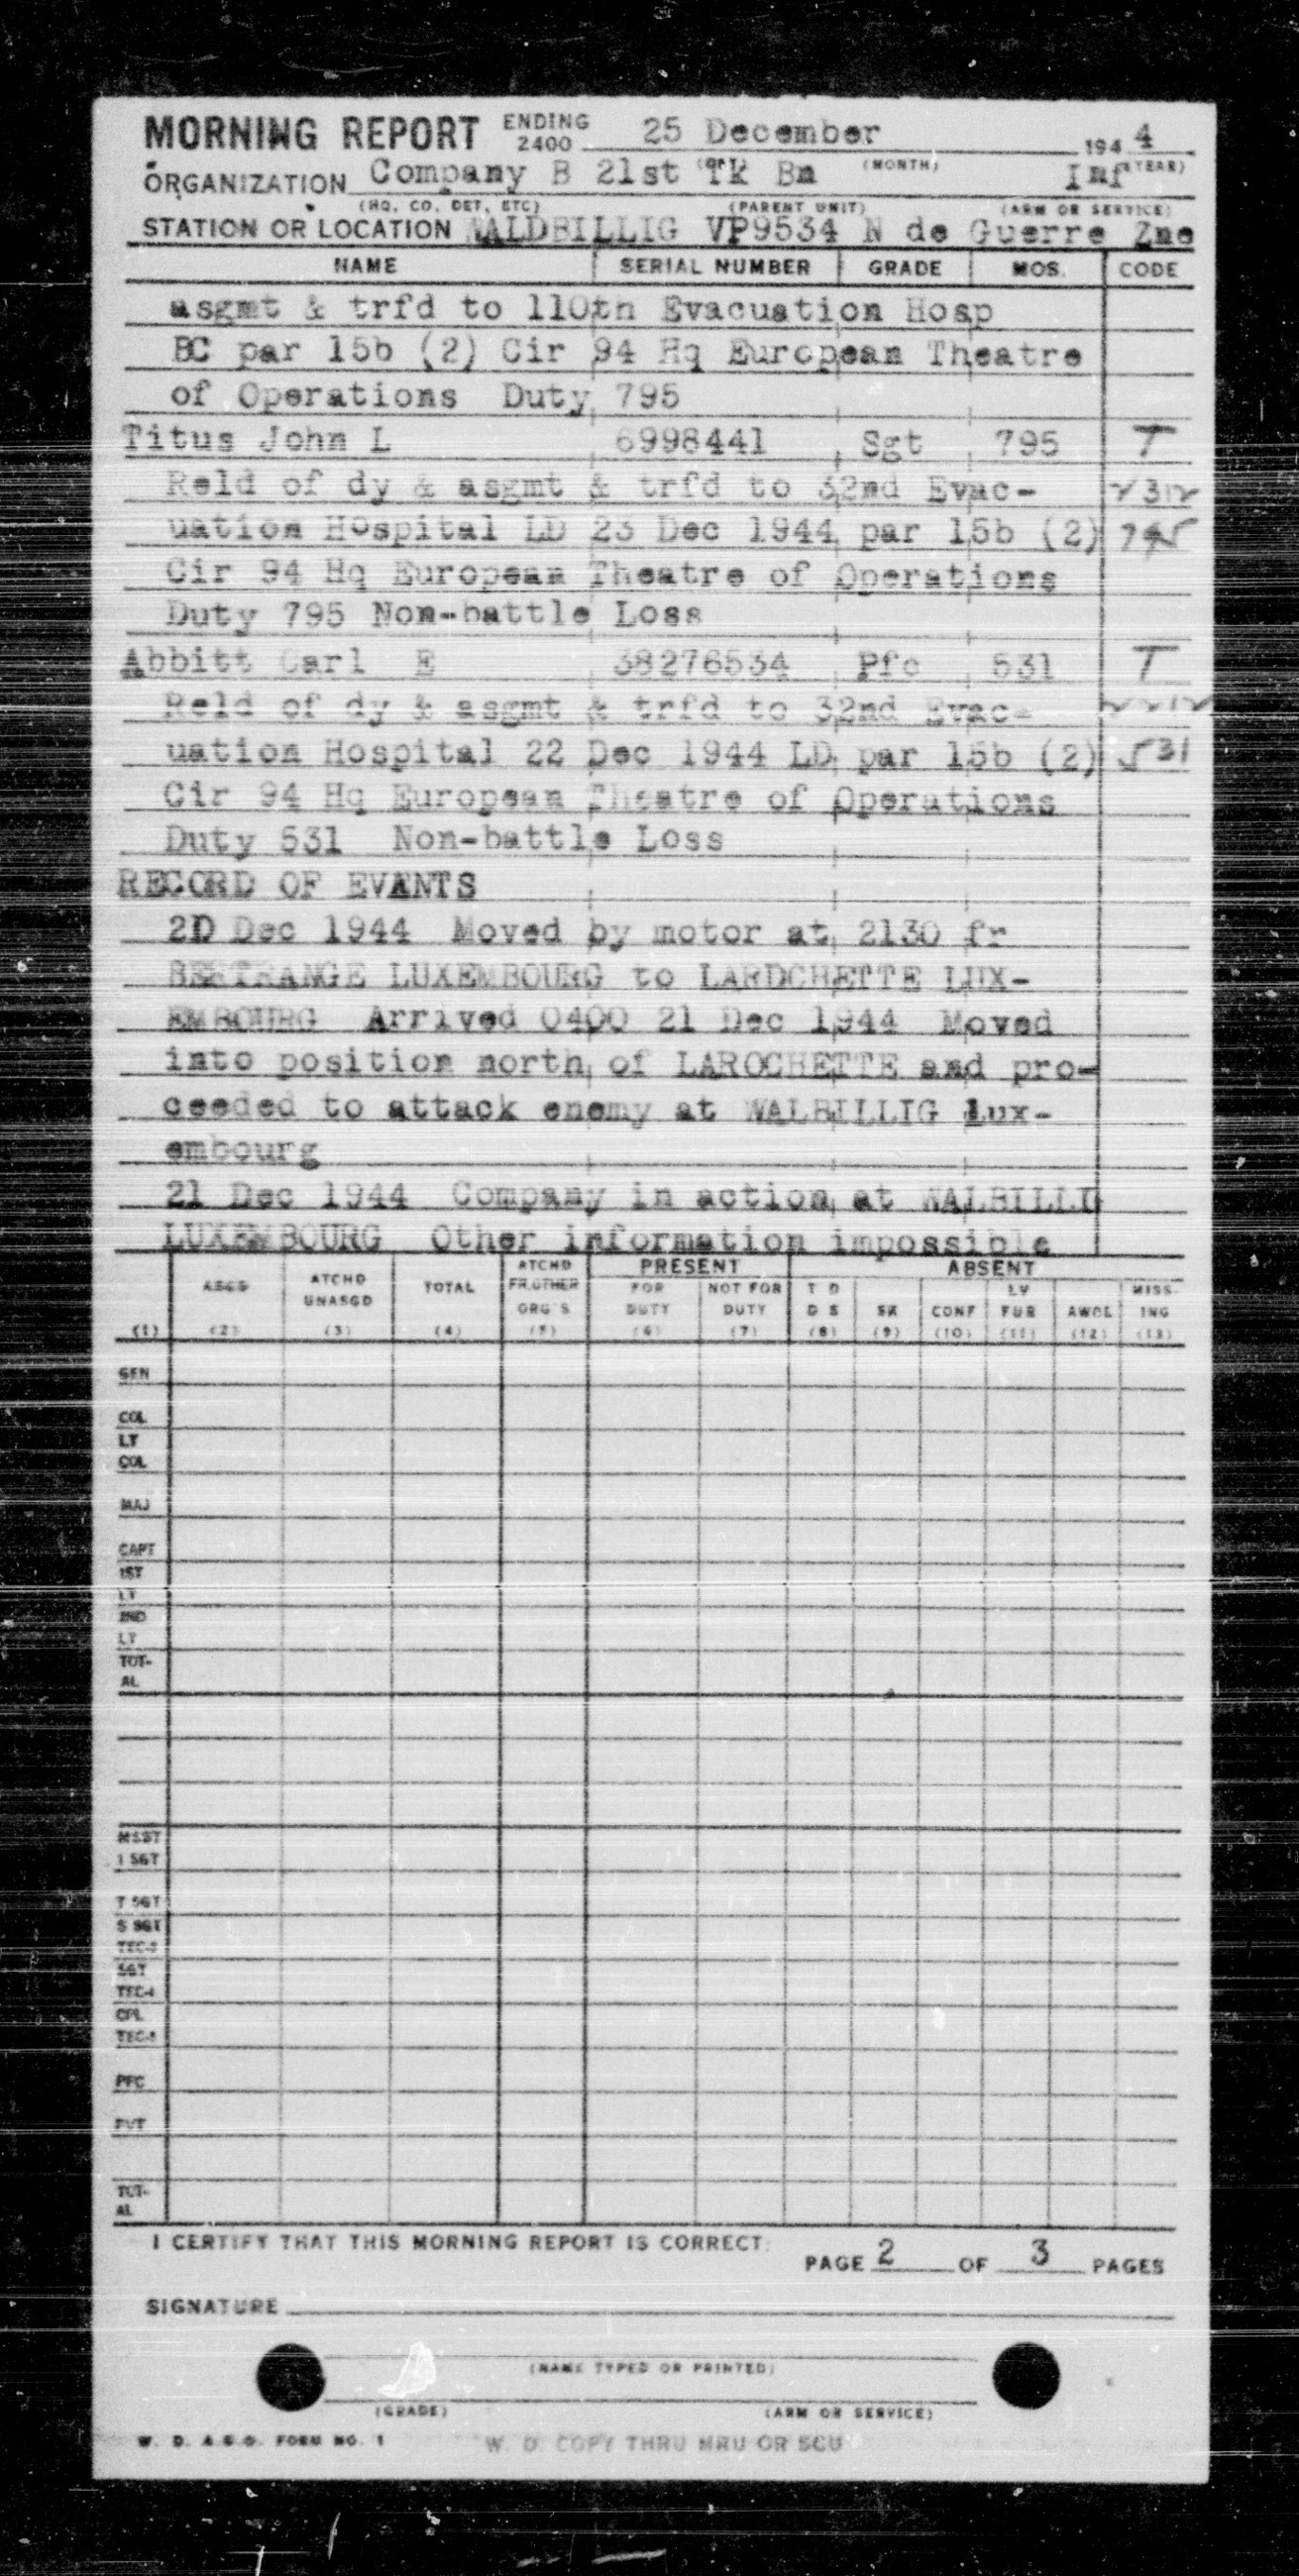 MORNING REPORT ENDING 2400 25 December 194 4
(DAY) (MONTH) (YEAR)
ORGANIZATION Company B 21st Tk Bn Inf
(HQ. CO. DET, ETC) (PARENT UNIT) (ARM OR SERVICE)
STATION OR LOCATION WALDBILLIG VP9534 N de Guerre Zne
NAME SERIAL NUMBER GRADE MOS. CODE
asgmt & trfd to 110th Evacuation Hosp
BC par 15b (2) Cir 94 Hq European Theatre
of Operations Duty 795
Titus John L 6998441 Sgt 795 T
Reld of dy & asgmt & trfd to 32nd Evac-
uation Hospital LD 23 Dec 1944 par 15b (2) 795
Cir 94 Hq European Theatre of Operations
Duty 795 Non-battle Loss
Abbitt Carl E 38276534 Pfc 531 T
Reld of dy & asgmt & trfd to 32nd Evac-
uation Hospital 22 Dec 1944 LD par 15b (2) 531
Cir 94 Hq European Theatre of Operations
Duty 531 Non-battle Loss
RECORD OF EVANTS
2D Dec 1944 Moved by motor at 2130 fr
BERTRANGE LUXEMBOURG to LARDCHETTE LUX-
EMBOURG Arrived 0400 21 Dec 1944 Moved
into position north of LAROCHETTE and pro-
ceeded to attack enemy at WALBILLIG Lux-
embourg
21 Dec 1944 Company in action at WALBILLI
LUXEMBOURG Other information impossible
PRESENT ABSENT
ASGD ATCHD UNASGD TOTAL ATCHD FR.OTHER ORG'S FOR DUTY NOT FOR DUTY T D D S SK CONF LV FUR AWOL MISS-ING
(1) (2) (3) (4) (5) (6) (7) (8) (9) (10) (11) (12) (13)
GEN
COL
LT
COL
MAJ
CAPT
1ST
LT
2ND
LT
TOT-
AL
M SGT
1 SGT
T SGT
S SGT
TEC-3
SGT
TEC-4
CPL
TEC-5
PFC
PVT
TOT-
AL
I CERTIFY THAT THIS MORNING REPORT IS CORRECT:
PAGE 2 OF 3 PAGES
SIGNATURE
(NAME TYPED OR PRINTED)
(GRADE) (ARM OR SERVICE)
W. D. A.G.O. FORM NO. 1 W. D. COPY THRU MRU OR SCU